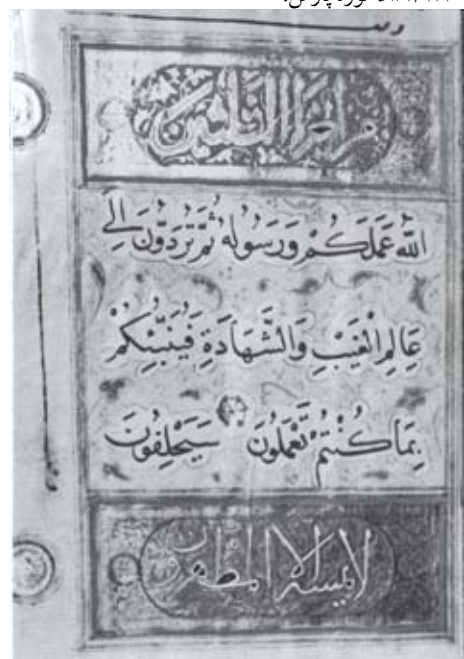 موزه پارس.
الله عَمَلَكُمْ وَرَسُولُهُ ثُمَّ تُرَدُّونَ إِلَى
عَالِمِ الْغَيْبِ وَالشَّهَادَةِ فَيُنَبِّئُكُمْ
بِمَا كُنْتُمْ تَعْمَلُونَ سَيَحْلِفُونَ
لا يمسه الا المطهرون